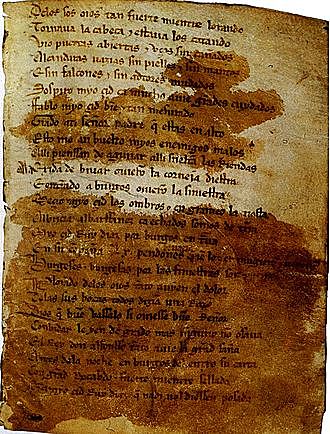 Delos sos oios tan fuerte mientre lorando
Tornaua la cabeça e estaua los catando
Vio puertas abiertas e vços sin cañados
Alcandaras uazias sin pielles e sin mantos
E sin falcones e sin adtores mudados
Sospiro myo çid ca mucho auie grandes cuydados
Ffablo myo çid bien e tan mesurado
Grado ati señor padre que estas en alto
Esto me an buelto myos enemigos malos
Alli pienssan de aguijar alli sueltan las Riendas
Ala exida de biuar ouieron la corneja diestra
E entrando a burgos ouieron la siniestra
Meçio myo çid los ombros e engrameo la tiesta
Albricia albarffanez ca echados somos de tierra
Myo çid Ruy diaz por burgos
En su lx pendones
Burgeses e burgesas por las finiestras son
Plorando delos oios tanto auyen el dolor
Delas sus bocas todos dizian una Razon
Dios que buen vassalo si ouiesse buen Señor
Conbidar le yen de grado mas ninguno non osaua
El Rey don alfonsso tanto auie la grand saña
Antes dela noche en burgos del entro su carta
Con grand Recabdo e fuerte mientre sellada
Que a myo çid Ruy diaz que nadi nol diessen posada